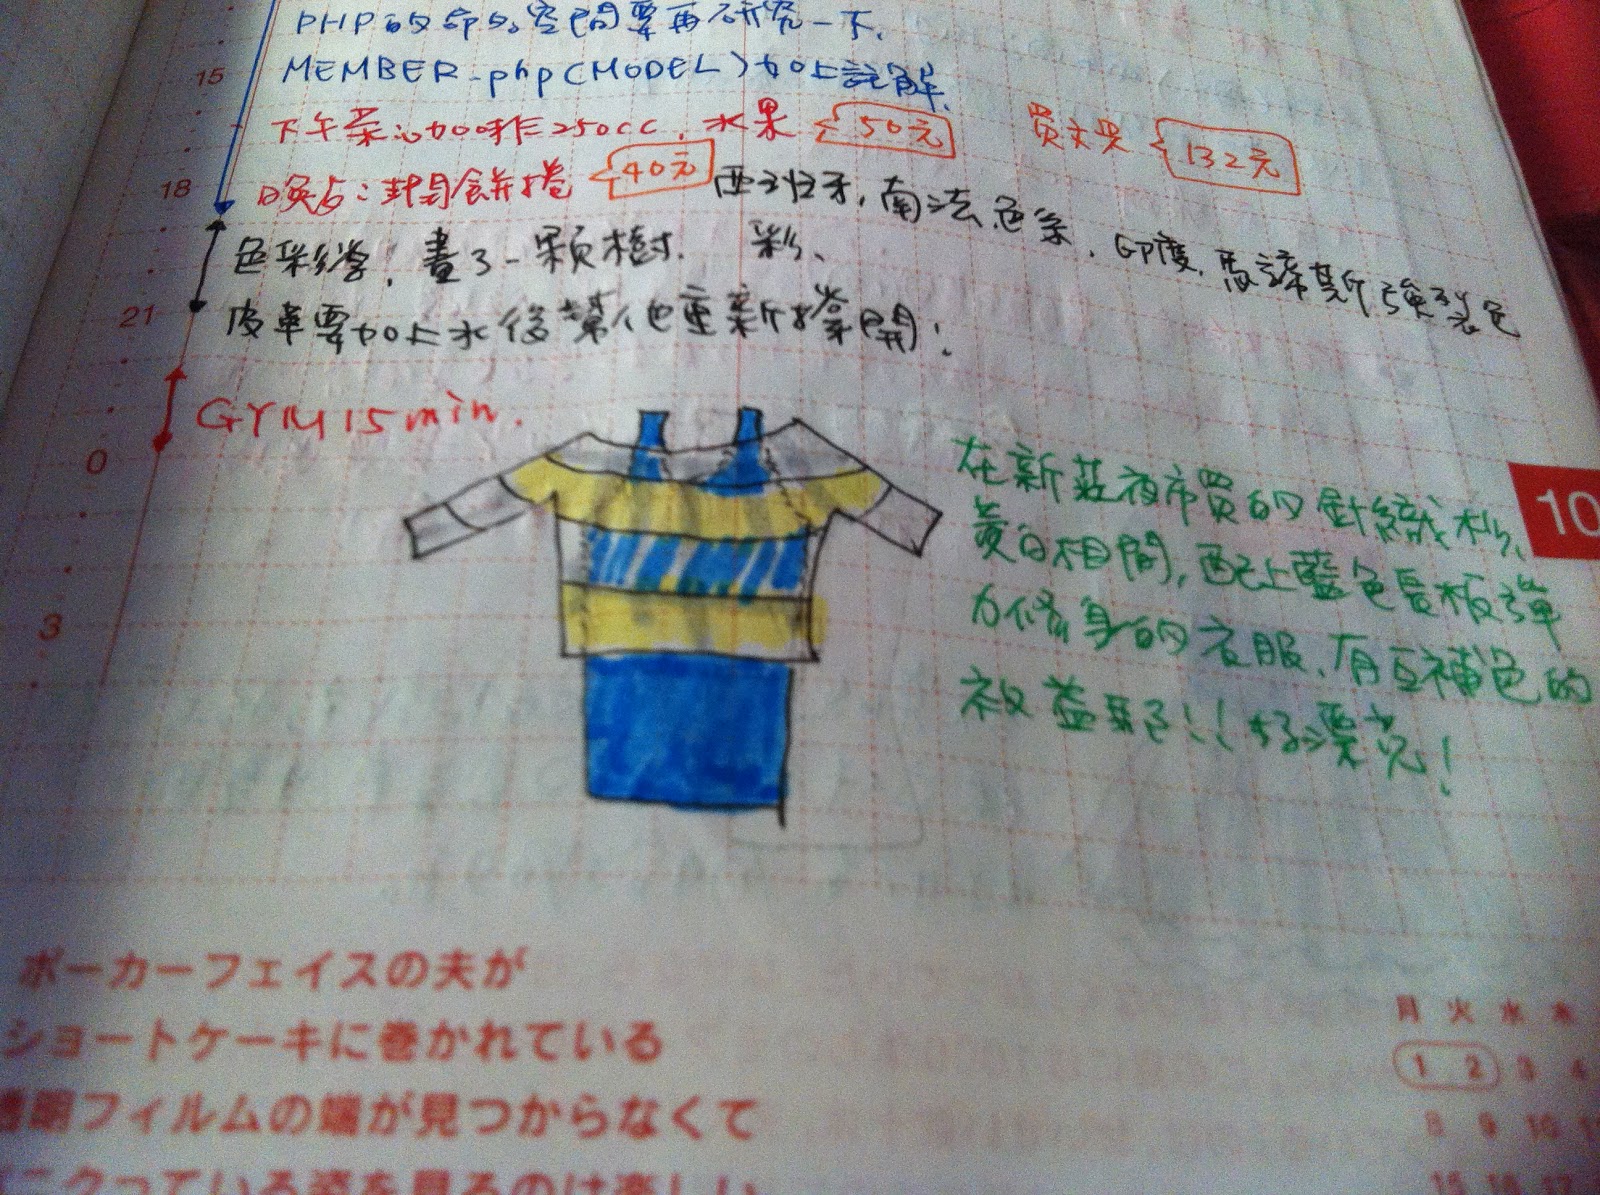 PHP的命名空間要再研究一下.
15
MEMBER.php(MODEL)加上註解.
下午茶:咖啡250cc,水果 50元 買水果 132元
18
晚占:封閉餅捲 40元 西班牙,南法色系,印度,馬諦斯強烈色
色彩學!畫了一顆樹. 彩、
21
皮革要加上水後幫他重新撐開!
GYM 15 min.
0
在新莊夜市買的針織衫、
黃白相間,配上藍色長板彈
力修身的衣服.有互補色的
效益呢!!好漂亮!
10
3
ポーカーフェイスの夫が
ショートケーキに巻かれている
透明フィルムの端が見つからなくて
っている姿を見るのは楽しい
月 火 水 木
1 2 3 4
8 9 10 11
15 16 17